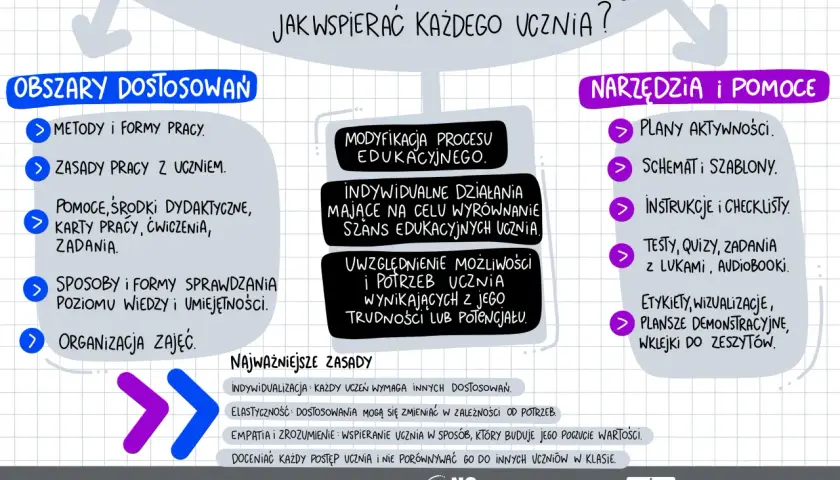 JAK WSPIERAĆ KAŻDEGO UCZNIA?
OBSZARY DOSTOSOWAŃ
METODY i FORMY PRACY.
ZASADY PRACY Z UCZNIEM.
POMOCE, ŚRODKI DYDAKTYCZNE,
KARTY PRACY, ĆWICZENIA,
ZADANIA.
SPOSOBY i FORMY SPRAWDZANIA
POZIOMU WIEDZY i UMIEJĘTNOŚCI.
ORGANIZACJA ZAJĘĆ.
MODYFIKACJA PROCESU
EDUKACYJNEGO.
INDYWIDUALNE DZIAŁANIA
MAJĄCE NA CELU WYRÓWNANIE
SZANS EDUKACYJNYCH UCZNIA.
UWZGLĘDNIENIE MOŻLIWOŚCI
i POTRZEB UCZNIA
WYNIKAJĄCYCH Z JEGO
TRUDNOŚCI LUB POTENCJAŁU.
NARZĘDZIA i POMOCE
PLANY AKTYWNOŚCI.
SCHEMATY i SZABLONY.
INSTRUKCJE i CHECKLISTY.
TESTY, QUIZY, ZADANIA
Z LUKAMI, AUDIOBOOKI.
ETYKIETY, WIZUALIZACJE,
PLANSZE DEMONSTRACYJNE,
WKLEJKI DO ZESZYTÓW.
NAJWAŻNIEJSZE ZASADY
INDYWIDUALIZACJA: KAŻDY UCZEŃ WYMAGA INNYCH DOSTOSOWAŃ.
ELASTYCZNOŚĆ: DOSTOSOWANIA MOGĄ SIĘ ZMIENIAĆ W ZALEŻNOŚCI OD POTRZEB.
EMPATIA i ZROZUMIENIE: WSPIERANIE UCZNIA W SPOSÓB, KTÓRY BUDUJE JEGO POCZUCIE WARTOŚCI.
DOCENIAĆ KAŻDY POSTĘP UCZNIA i NIE PORÓWNYWAĆ GO DO INNYCH UCZNIÓW W KLASIE.